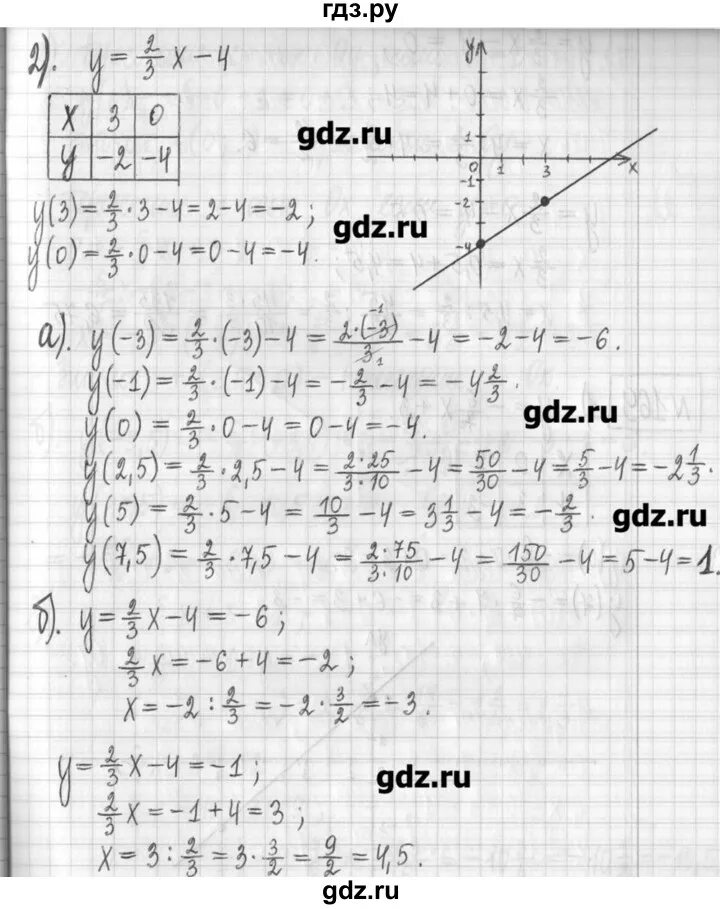 гдз.ру
2). y = 2/3 x − 4
x 3 0
y −2 −4
y
x
0 1 3
1
−1
−2
−4
gdz.ru
y(3) = 2/3 · 3 − 4 = 2 − 4 = −2;
gdz.ru
y(0) = 2/3 · 0 − 4 = 0 − 4 = −4.
а). y(−3) = 2/3 · (−3) − 4 = 2·(−3)/3 − 4 = −2 − 4 = −6.
−1
1
y(−1) = 2/3 · (−1) − 4 = −2/3 − 4 = −4 2/3.
gdz.ru
y(0) = 2/3 · 0 − 4 = 0 − 4 = −4.
y(2,5) = 2/3 · 2,5 − 4 = 2·25/3·10 − 4 = 50/30 − 4 = 5/3 − 4 = −2 1/3.
y(5) = 2/3 · 5 − 4 = 10/3 − 4 = 3 1/3 − 4 = −2/3.
gdz.ru
y(7,5) = 2/3 · 7,5 − 4 = 2·75/3·10 − 4 = 150/30 − 4 = 5 − 4 = 1.
б). y = 2/3 x − 4 = −6;
2/3 x = −6 + 4 = −2;
x = −2 : 2/3 = −2 · 3/2 = −3.
y = 2/3 x − 4 = −1;
gdz.ru
2/3 x = −1 + 4 = 3;
x = 3 : 2/3 = 3 · 3/2 = 9/2 = 4,5.
gdz.ru